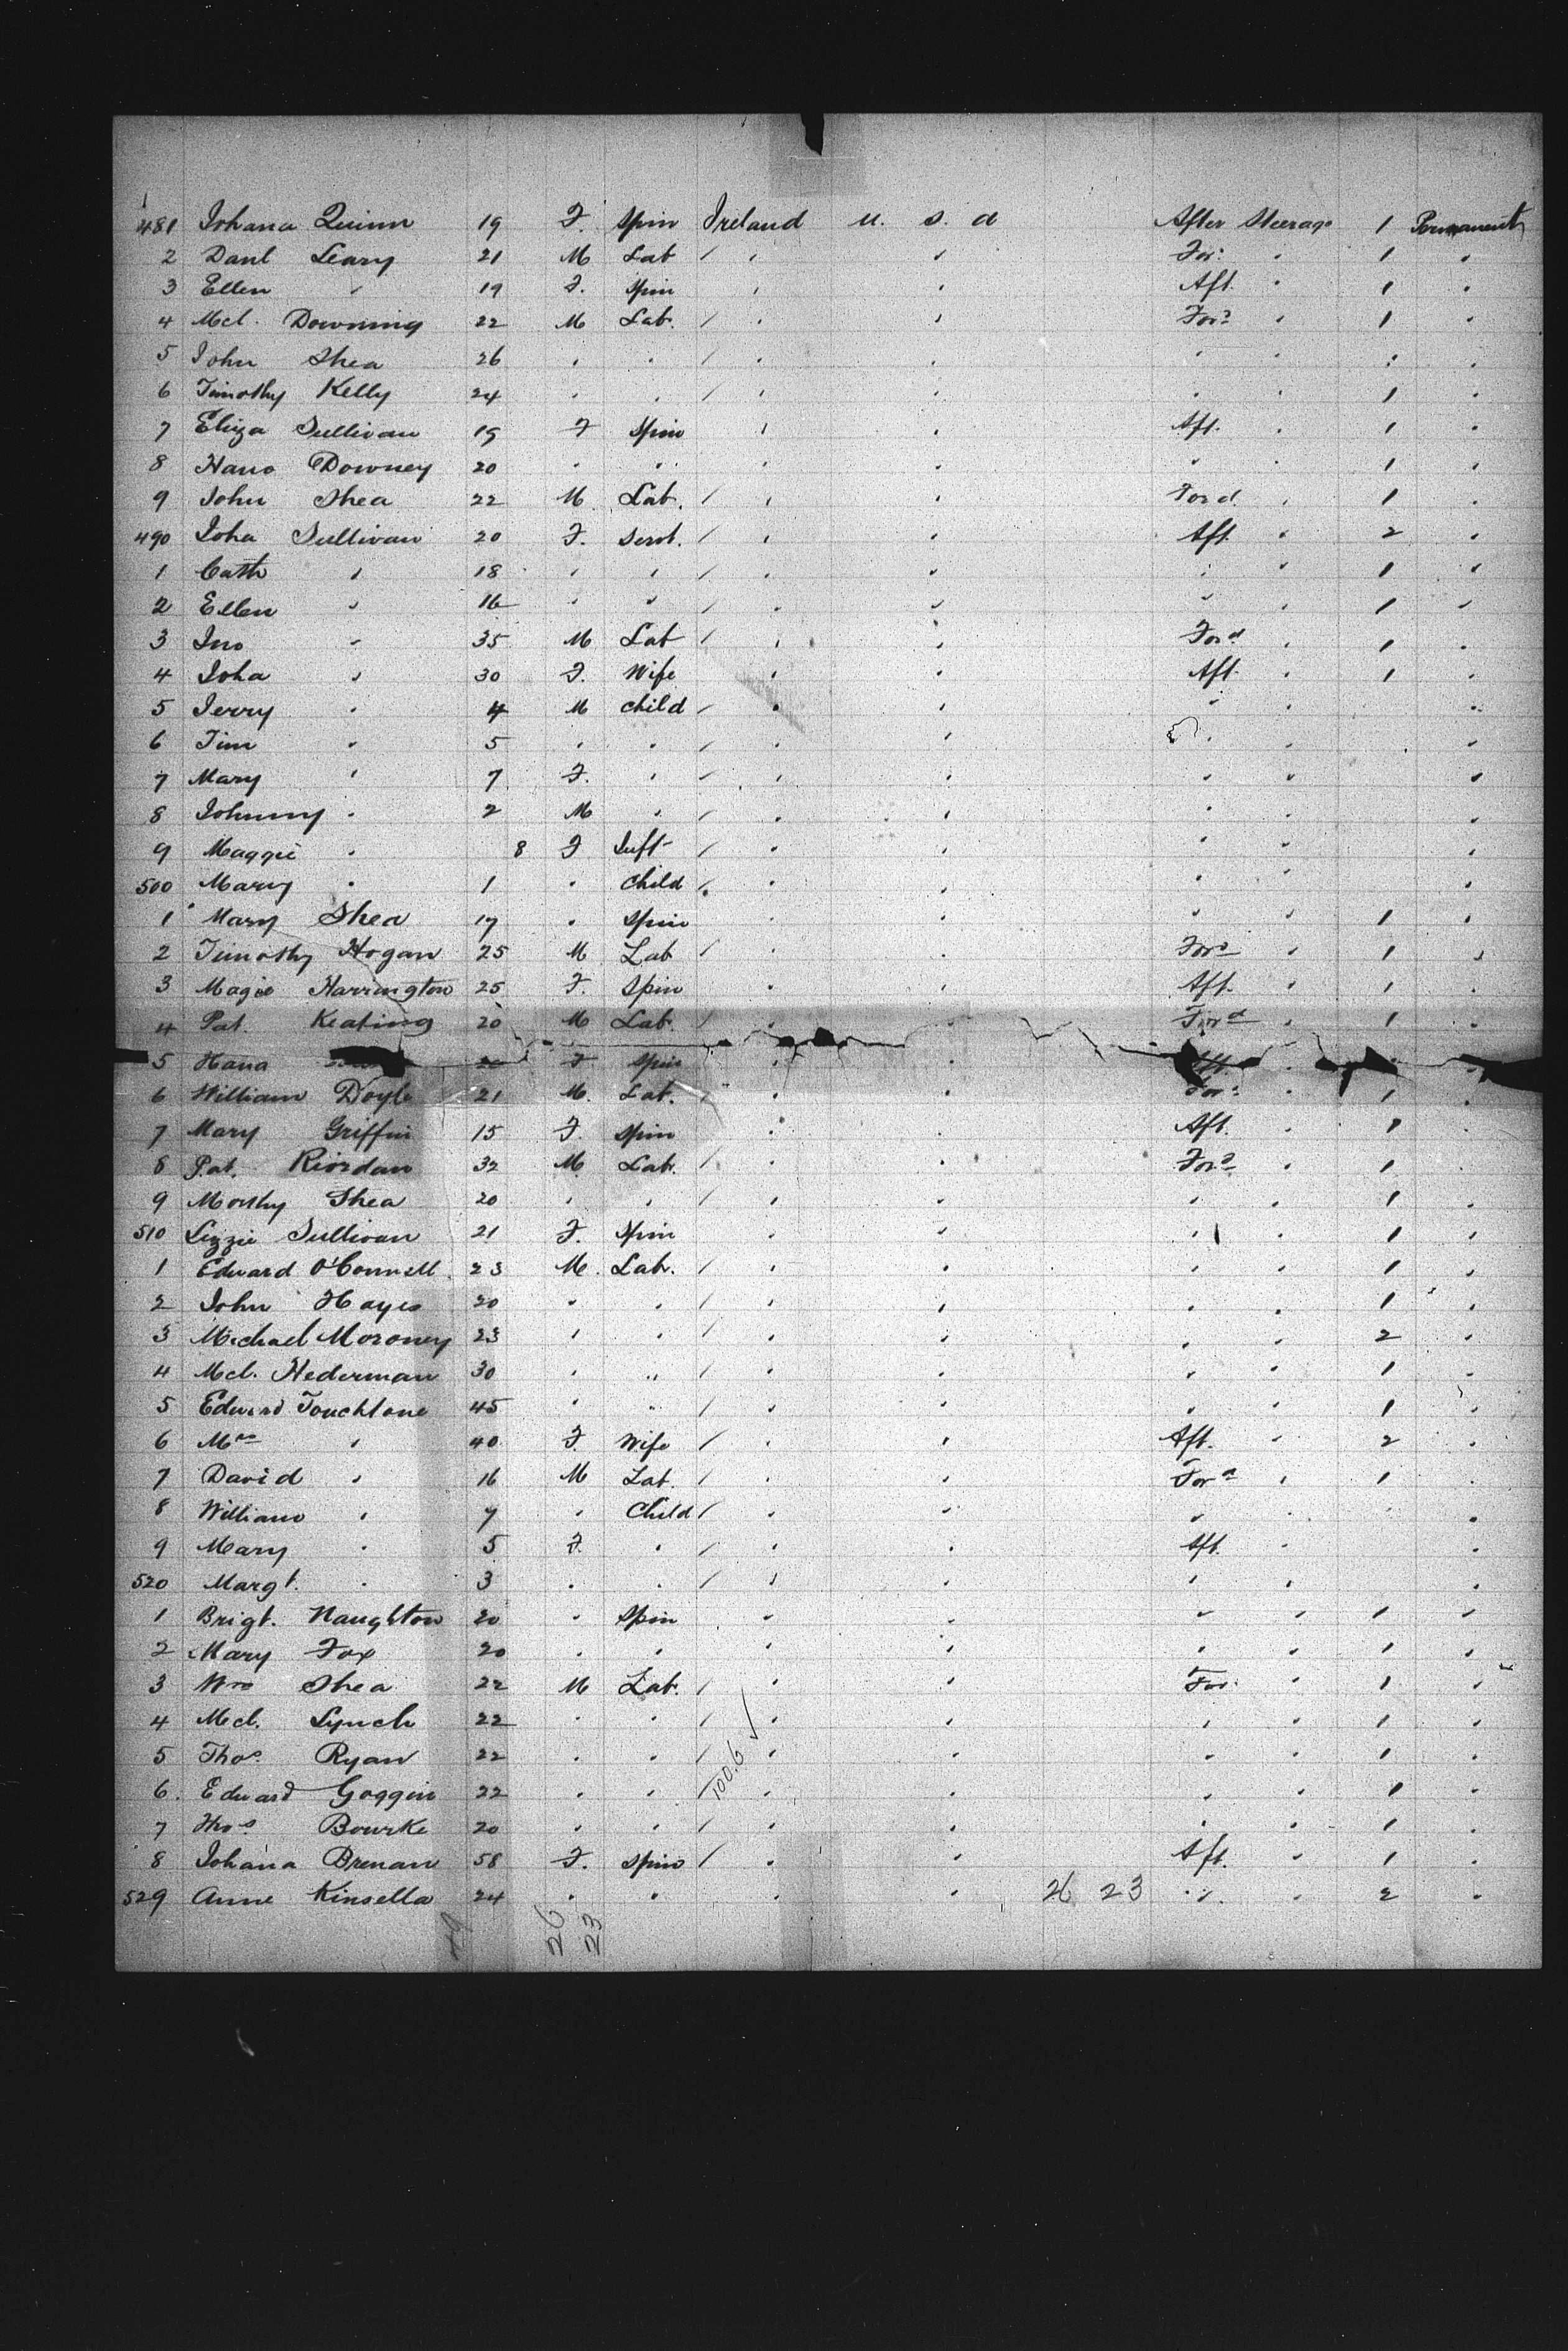 481 Johana Quinn 19 F. Spin Ireland U. S. A After Steerage 1 Permanent
2 Danl Leary 21 M Lab / " " For: " 1 "
3 Ellen " 19 F. Spin " " Aft. " 1 "
4 Mcl. Downing 22 M Lab. / " " Ford " 1 "
5 John Shea 26 " " / " " " " " "
6 Timothy Kelly 24 " " / " " " " 1 "
7 Eliza Sullivan 19 F Spin " " Aft. " 1 "
8 Hano Downey 20 " " " " " " 1 "
9 John Shea 22 M. Lab. / " " Ford. " 1 "
490 Joha Sullivan 20 F. Servt. / " " Aft. " 2 "
1 Cath " 18 " " / " " " " 1 "
2 Ellen " 16 " " / " " " " 1 "
3 Jno " 35 M Lab / " " Ford " 1 "
4 Joha " 30 F. Wife " " Aft. " 1 "
5 Jerry " 4 M child / " " " " "
6 Tim " 5 " " / " " " " "
7 Mary " 7 F. " / " " " " "
8 Johnny " 2 M " / " " " " "
9 Maggie " 8 F Inft / " " " " "
500 Mary " 1 " Child / " " " " "
1 Mary Shea 17 " Spin " " " " 1 "
2 Timothy Hogan 25 M Lab / " Ford " 1 "
3 Magie Harrington 25 F. Spin " " Aft. " 1 "
4 Pat. Keating 20 M Lab. / " " Ford " 1 "
5 Hana F Spin " " Aft. " "
6 William Doyle 21 M. Lab. / " " For: " 1 "
7 Mary Griffin 15 F. Spin " " Aft. " 1 "
8 Pat. Riordan 32 M. Lab. / " " Ford " 1 "
9 Morthy Shea 20 " " / " " " " 1 "
510 Lizzie Sullivan 21 F. Spin " " " " 1 "
1 Edward O'Connell 23 M. Lab. / " " " " 1 "
2 John Hayes 20 " " / " " " " 1 "
3 Michael Moroney 23 " " / " " " " 2 "
4 Mcl. Hederman 30 " " / " " " " 1 "
5 Edward Touchtone 45 " " / " " " " 1 "
6 Mrs " 40 F. Wife / " " Aft. " 2 "
7 David " 16 M Lab. / " " Ford " 1 "
8 William " 7 " Child / " " " " "
9 Mary " 5 F. " / " " Aft. " "
520 Margt. " 3 " " / " " " " "
1 Brigt. Naughton 20 " Spin " " " " 1 "
2 Mary Fox 20 " " " " " " 1 "
3 Wm Shea 22 M Lab. / " " For. " 1 "
4 Mcl. Lynch 22 " " / " " " " 1 "
5 Thos. Ryan 22 " " / " " " " 1 "
6. Edward Goggin 22 " " / 100.6 ✓ " " " " 1 "
7 Thos. Bourke 20 " " / " " " " 1 "
8 Johana Brenan 58 F. Spin / " " Aft. " 1 "
529 Anne Kinsella 24 " " " " 26 23 " " 2 "
49 26 23